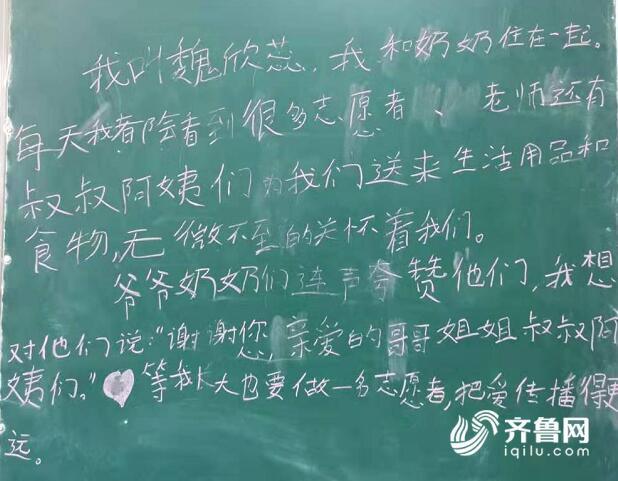 我叫魏欣蕊，我和奶奶住在一起。
每天我都会看到很多志愿者、老师还有
叔叔阿姨们为我们送来生活用品和
食物，无微不至的关怀着我们。
爷爷奶奶们连声夸赞他们，我想
对他们说：“谢谢您，亲爱的哥哥姐姐叔叔阿
姨们。”等我长大也要做一名志愿者，把爱传播得更
远。
齐鲁网
iqilu.com